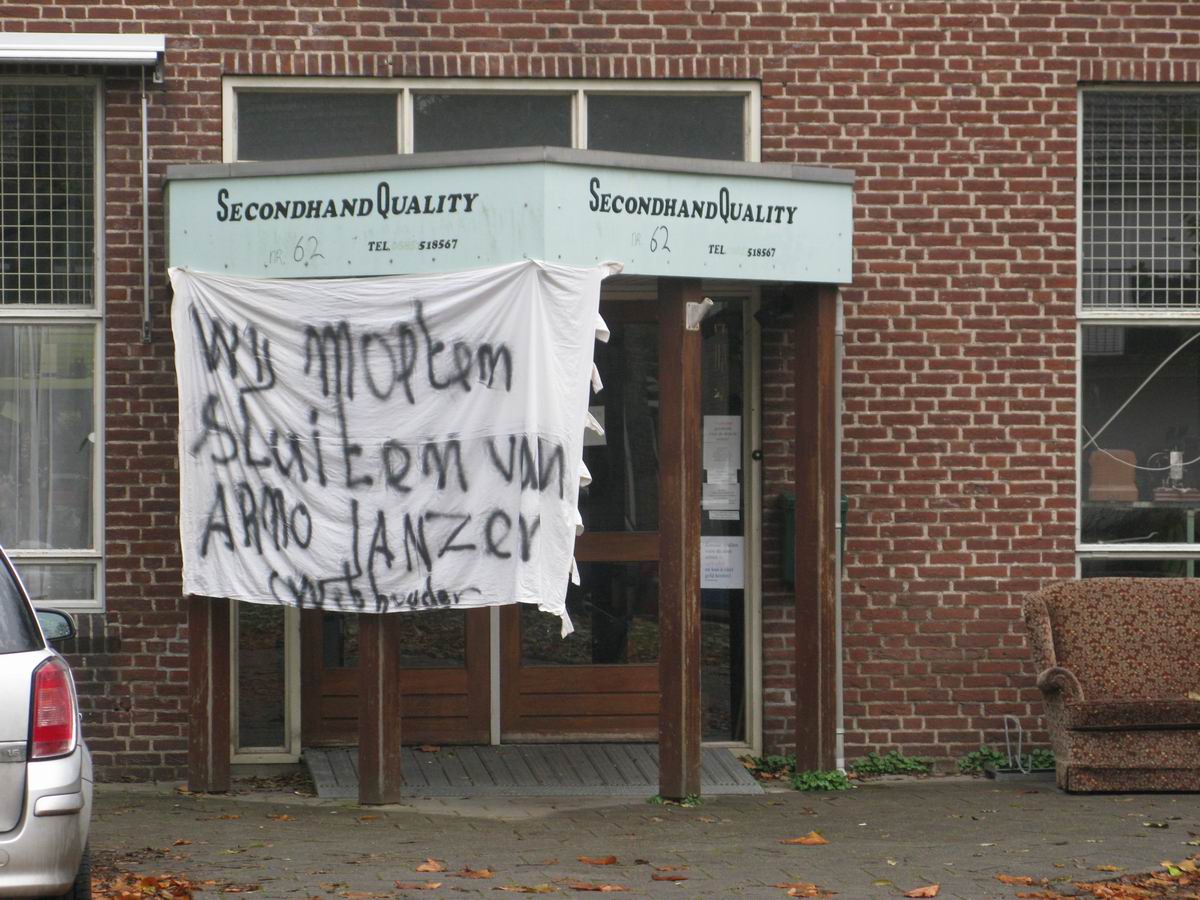 SECONDHANDQUALITY
NR. 62 TEL. 518567
SECONDHANDQUALITY
NR. 62 TEL. 518567
Wij moeten
sluiten van
ARNO JANZEN